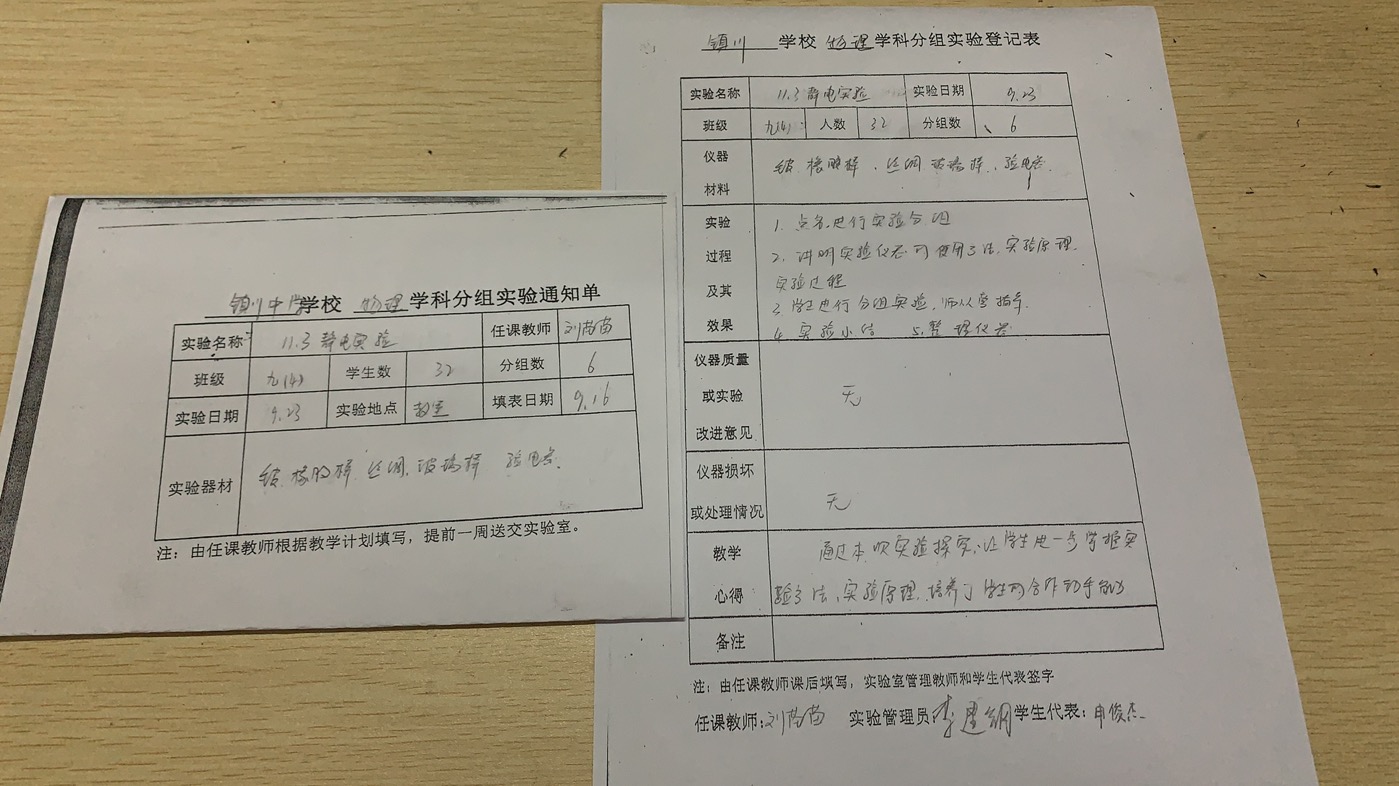 镇川中学学校 物理 学科分组实验通知单
实验名称 11.3静电实验 任课教师 刘苗苗
班级 九(4) 学生数 32 分组数 6
实验日期 9.23 实验地点 教室 填表日期 9.16
实验器材 橡胶棒 丝绸、玻璃棒 验电器.
注：由任课教师根据教学计划填写，提前一周送交实验室。
镇川 学校 物理 学科分组实验登记表
实验名称 11.3静电实验 实验日期 9.23
班级 九(4) 人数 32 分组数 6
仪器
材料
橡胶棒、丝绸 玻璃棒、验电器.
实验
过程
及其
效果
1. 点名进行实验分组
2. 讲明实验仪器的使用方法、实验原理.
实验过程
3. 学生进行分组实验、师从旁指导.
4. 实验小结 5. 整理仪器
仪器质量
或实验
改进意见
无
仪器损坏
或处理情况
无
教学
心得
通过本次实验探究、让学生进一步掌握实
验方法、实验原理、培养了学生的合作动手能力
备注
注：由任课教师课后填写，实验室管理教师和学生代表签字
任课教师：刘苗苗 实验管理员 李 学生代表：申俊杰